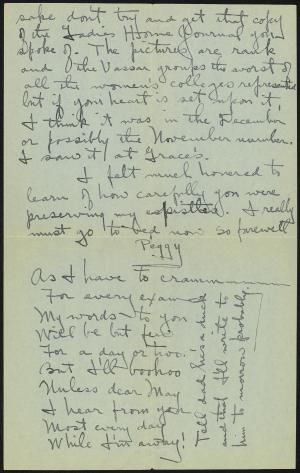 sake don't try and get that copy
of the Ladies Home Journal you
spoke of. The pictures are rank
and the Vassar groups the worst of
all the women's colleges represented
but if your heart is set upon it,
I think it was in the December
or possibly the November number.
I saw it at Grace's.
I felt much honored to
learn of how carefully you were
preserving my epistles. I really
must go to bed now so farewell
Peggy
As I have to cram
For every exam
My words to you
Will be but few
For a day or two.
But I'll boohoo
Unless dear May
I hear from you
Most every day
While I'm away!
Tell dad he's a duck
and that I'll write to
him to morrow probably.